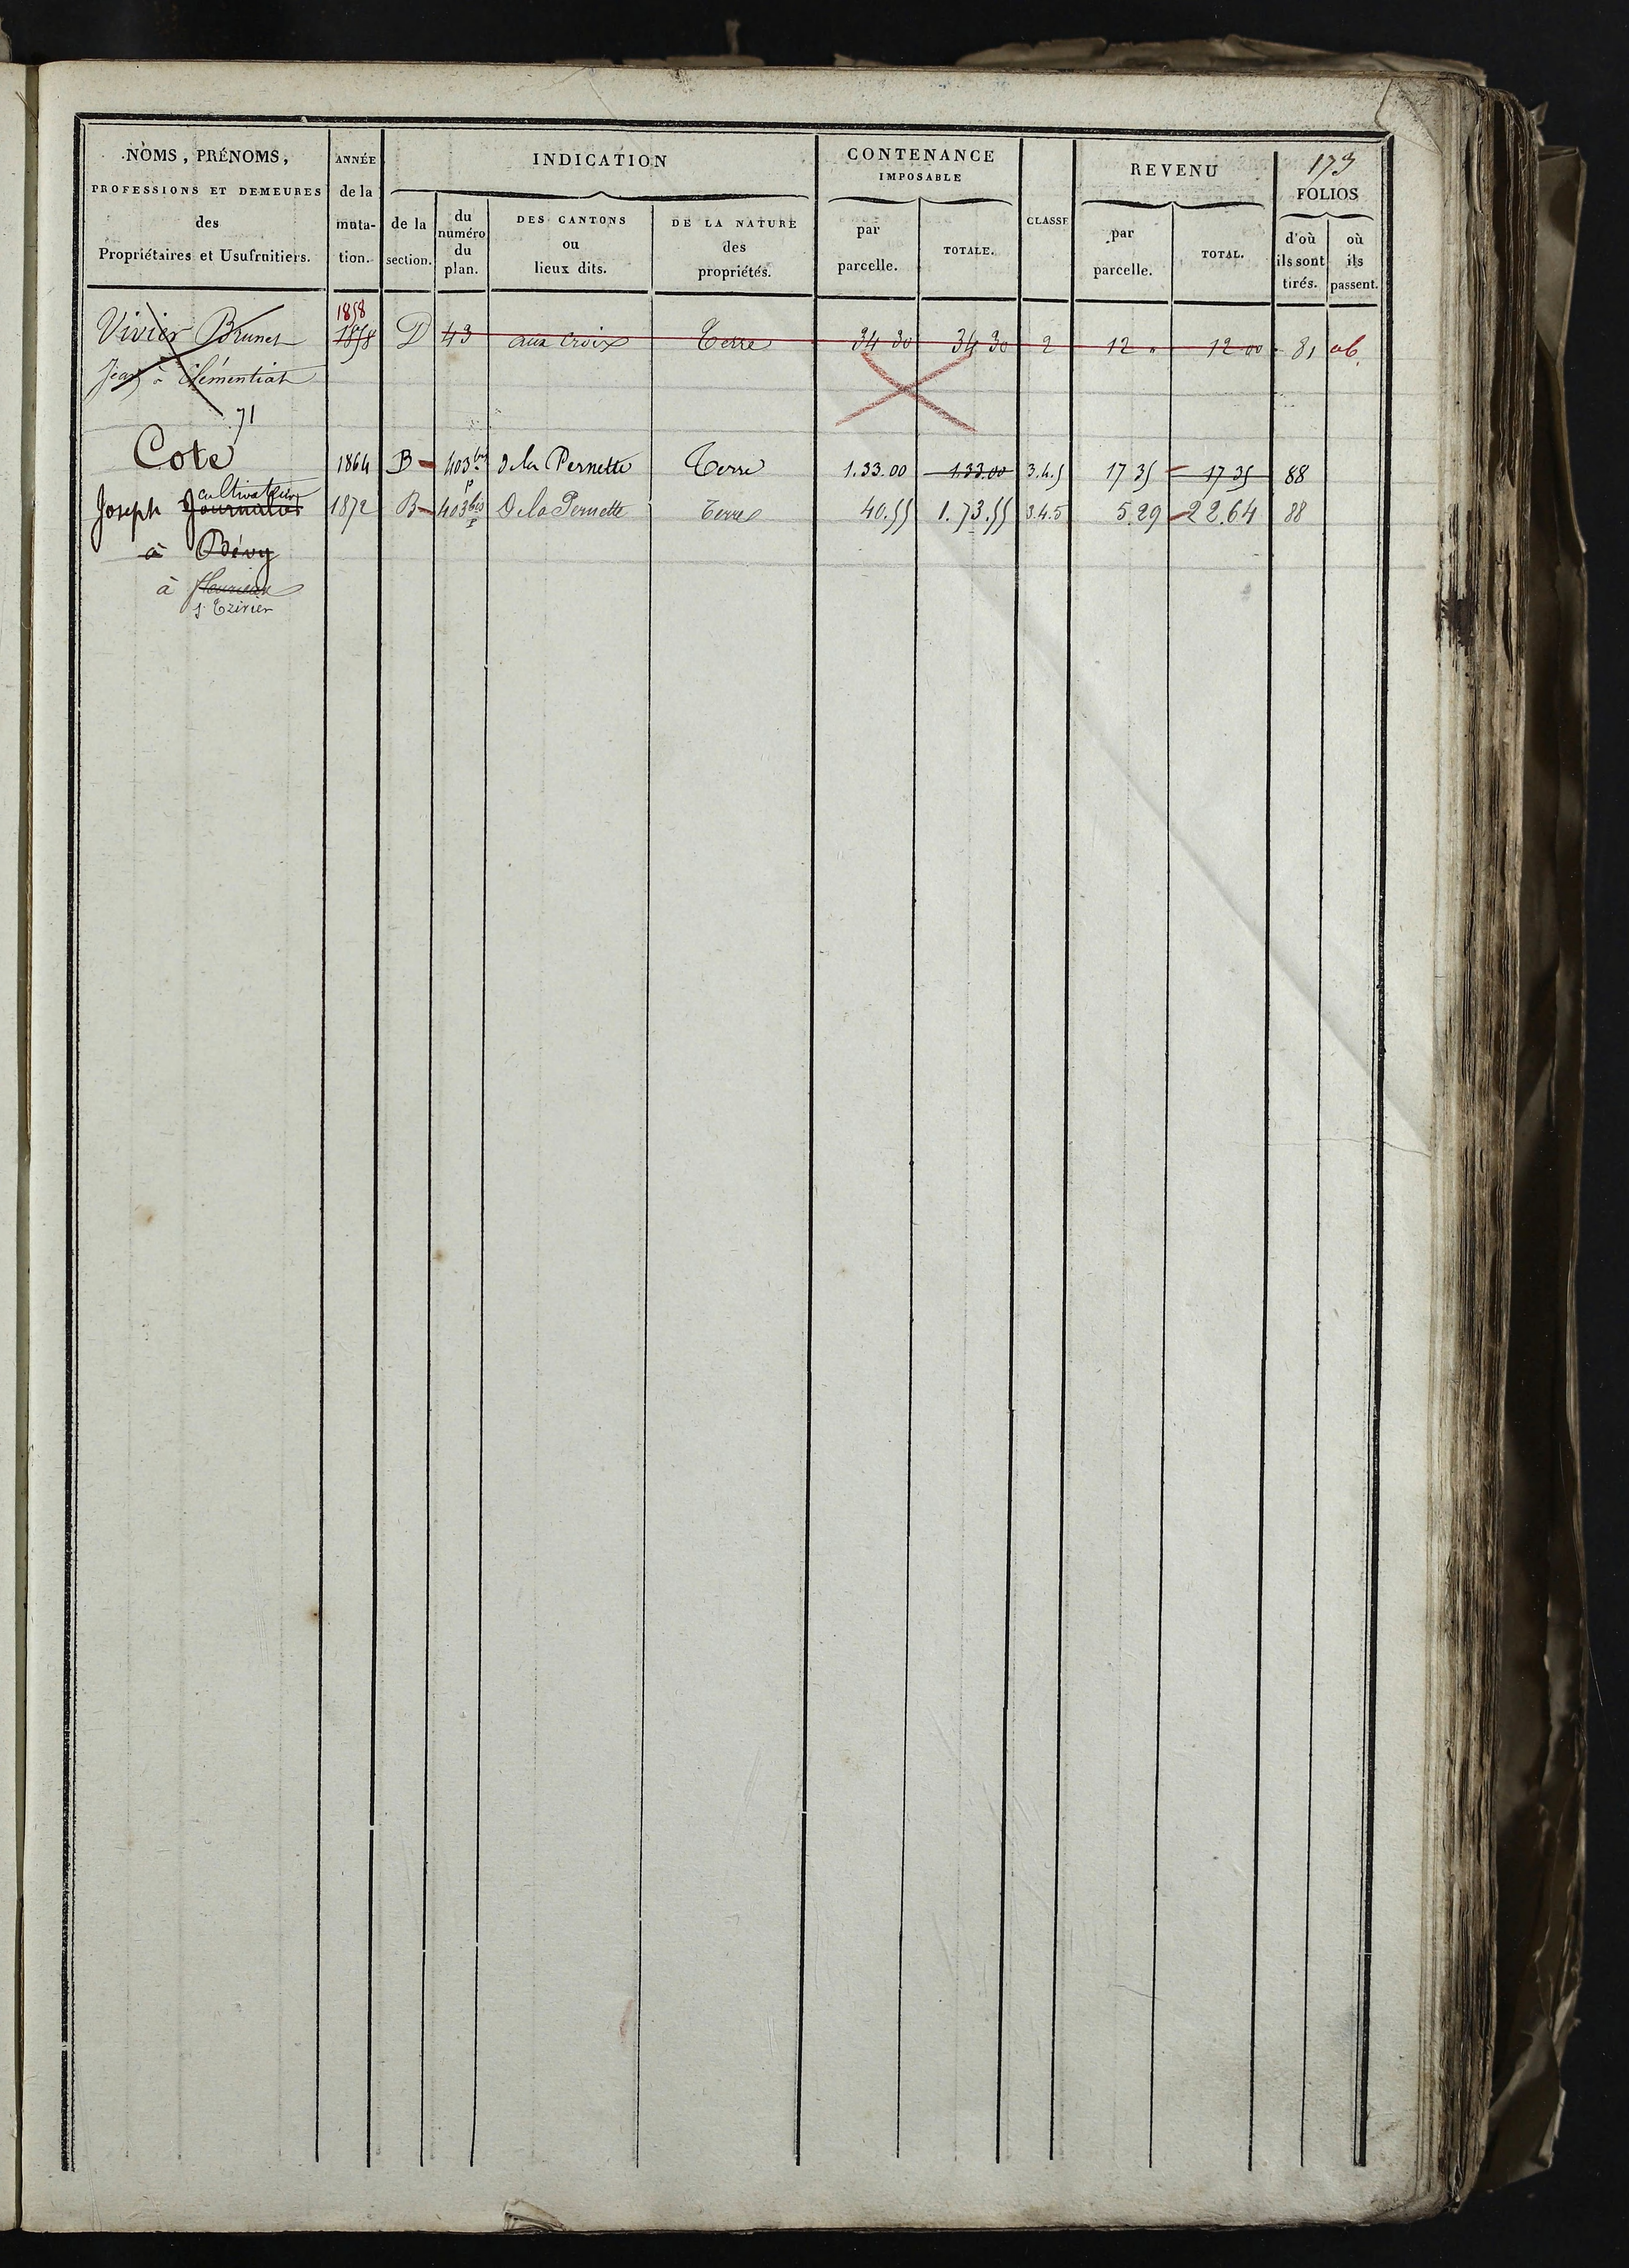 173
NOMS, PRÉNOMS, PROFESSIONS ET DEMEURES des Propriétaires et Usufruitiers.
ANNÉE de la muta-tion.
INDICATION
de la section.
du numéro du plan.
DES CANTONS ou lieux dits.
DE LA NATURE des propriétés.
CONTENANCE IMPOSABLE
par parcelle.
TOTALE.
CLASSE
REVENU
par parcelle.
TOTAL.
FOLIOS
d'où ils sont tirés.
où ils passent.
1858
Vivier Brunet 1858 D 43 aux Croix Terre 34 30 34 30 2 12 " 12 00 81
Jean à Clémentiat
71
Cote 1864 B 403 bis p De la Pernette Terre 1.33.00 1.33.00 3.4.5 17 35 17 35 88
cultivateur
Joseph Journalier 1872 B 403 bis p De la Pernette Terre 40.55 1.73.55 3.4.5 5.29 22.64 88
à
à fleurieux
s. Trivier